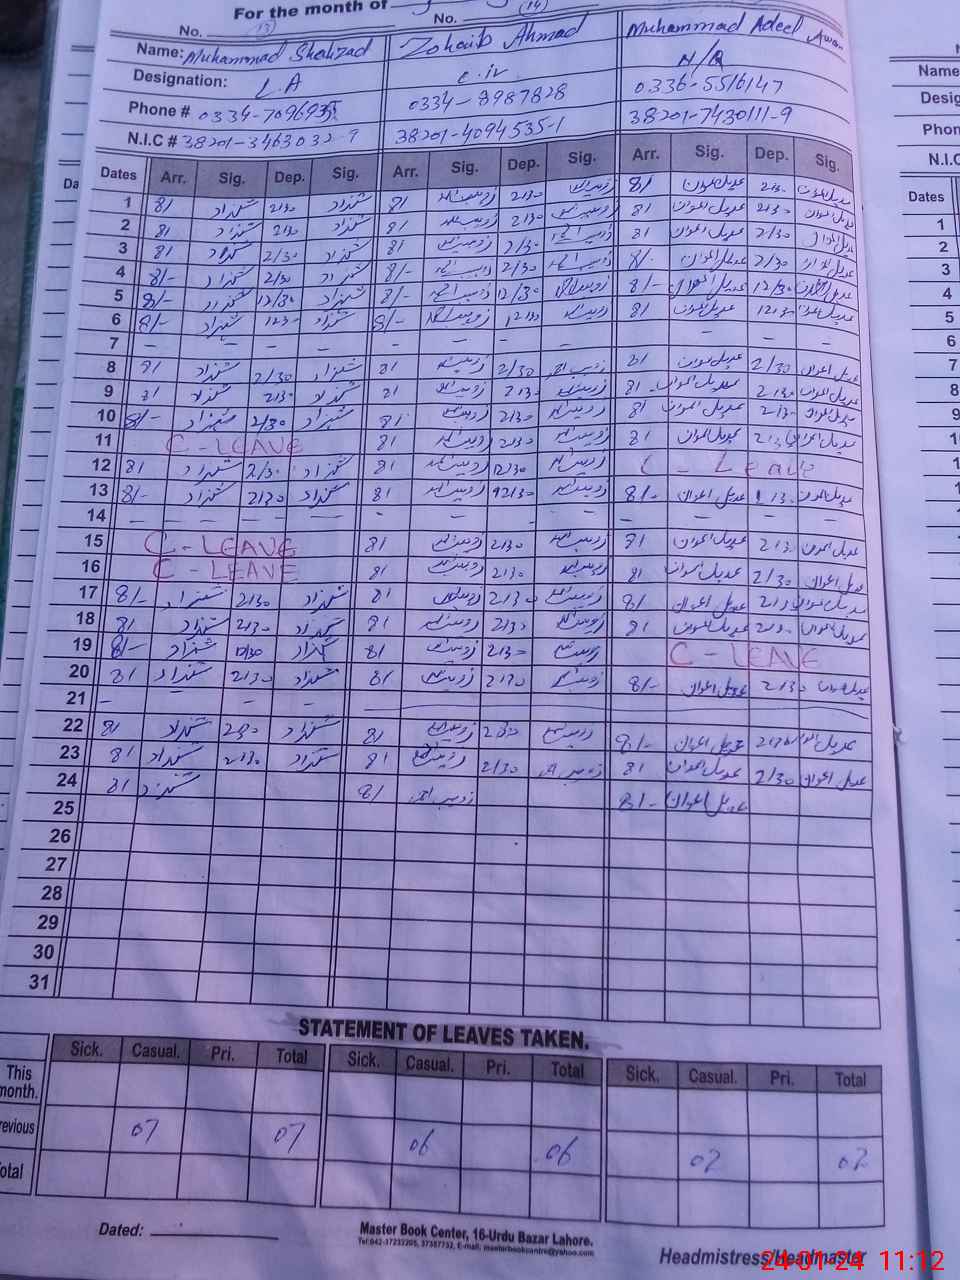 For the month of
No. (13) No. (14)
Name: Muhammad Shahzad Zohaib Ahmad Muhammad Adeel Awan
Designation: L.A c.iv N/Q
Phone # 0334-7096935 0334-8987828 0336-5516147
N.I.C # 38201-3463032-9 38201-4094535-1 38201-7430111-9
Dates Arr. Sig. Dep. Sig. Arr. Sig. Dep. Sig. Arr. Sig. Dep. Sig.
1 8/ شہزاد 2/30 شہزاد 8/ زوہیب احمد 2/30 زوہیب احمد 8/ عدیل اعوان 2/30 عدیل اعوان
2 8/ شہزاد 2/30 شہزاد 8/ زوہیب احمد 2/30 زوہیب احمد 8/ عدیل اعوان 2/30 عدیل اعوان
3 8/ شہزاد 2/30 شہزاد 8/ زوہیب احمد 2/30 زوہیب احمد 8/ عدیل اعوان 2/30 عدیل اعوان
4 8/- شہزاد 2/30 شہزاد 8/- زوہیب احمد 2/30 زوہیب احمد 8/- عدیل اعوان 2/30 عدیل اعوان
5 8/- شہزاد 12/30 شہزاد 8/- زوہیب احمد 12/30 زوہیب احمد 8/- عدیل اعوان 12/30 عدیل اعوان
6 8/- شہزاد 1230 شہزاد 8/- زوہیب احمد 12130 زوہیب احمد 8/ عدیل اعوان 1213 عدیل اعوان
7 – – – – – – – – – – –
8 8/ شہزاد 2/30 شہزاد 8/ زوہیب احمد 2/30 زوہیب احمد 8/ عدیل اعوان 2/30 عدیل اعوان
9 8/ شہزاد 2/30 شہزاد 8/ زوہیب احمد 2/30 زوہیب احمد 8/ عدیل اعوان 2/30 عدیل اعوان
10 8/- شہزاد 2/30 شہزاد 8/ زوہیب احمد 2/30 زوہیب احمد 8/ عدیل اعوان 2/3 عدیل اعوان
11 C - LEAVE 8/ زوہیب احمد 2/30 زوہیب احمد 8/ عدیل اعوان 2/3 عدیل اعوان
12 8/ شہزاد 2/30 شہزاد 8/ زوہیب احمد 12/30 زوہیب احمد C - Leave
13 8/- شہزاد 2/30 شہزاد 8/ زوہیب احمد 12/30 زوہیب احمد 8/- عدیل اعوان عدیل اعوان
14 – – – – – – – – – – –
15 C - LEAVE 8/ زوہیب احمد 2/30 زوہیب احمد 8/ عدیل اعوان 2/30 عدیل اعوان
16 C - LEAVE 8/ زوہیب احمد 2/30 زوہیب احمد 8/ عدیل اعوان 2/30 عدیل اعوان
17 8/- شہزاد 2/30 شہزاد 8/ زوہیب احمد 2/30 زوہیب احمد 8/ عدیل اعوان عدیل اعوان
18 8/ شہزاد 2/30 شہزاد 8/ زوہیب احمد 2/30 زوہیب احمد 8/ عدیل اعوان عدیل اعوان
19 8/- شہزاد 12/30 شہزاد 8/ زوہیب احمد 2/30 زوہیب احمد C - LEAVE
20 8/ شہزاد 2/30 شہزاد 8/ زوہیب احمد 2/30 زوہیب احمد 8/- عدیل اعوان 2/30 عدیل اعوان
21 – – –
22 8/ شہزاد 2/30 شہزاد 8/ زوہیب احمد 2/30 زوہیب احمد 8/- عدیل اعوان 2/30 عدیل اعوان
23 8/ شہزاد 2/30 شہزاد 8/ زوہیب احمد 2/30 زوہیب احمد 8/ عدیل اعوان 2/30 عدیل اعوان
24 8/ شہزاد 8/ زوہیب احمد 8/- عدیل اعوان
25
26
27
28
29
30
31
STATEMENT OF LEAVES TAKEN.
Sick. Casual. Pri. Total Sick. Casual. Pri. Total Sick. Casual. Pri. Total
This month.
revious 07 07 06 06 02 02
otal
Dated:
Master Book Center, 16-Urdu Bazar Lahore.
Tel:042-37232205, 37357732, E-mail: masterbookcentre@yahoo.com
Headmistress/Headmaster
24-01-24 11:12
Name
Desig
Phon
N.I.C
Dates
1
2
3
4
5
6
7
8
9